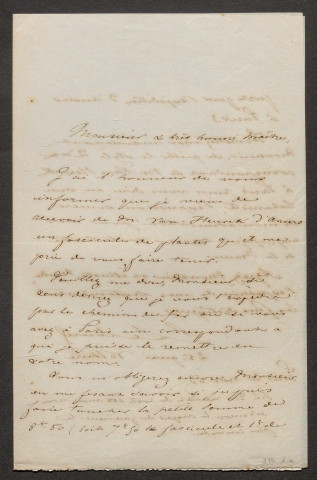 Monsieur & très honoré Maître,
J'ai l'honneur de vous
informer que je viens de
recevoir de Mr. Van Heurck d'Anvers
un fascicule de plantes qu'il me
prie de vous faire tenir.
Veuillez me dire, Monsieur, si
vous désirez que je vous l'expédie
par le chemin de fer ou si vous
avez à Paris un correspondant à
qui je puisse le remettre en
votre nom.
Vous m'obligerez encore, Monsieur,
en me faisant savoir si je puis
faire toucher la petite somme de
8f 50 (soit 7f 50 le fascicule et 1f de